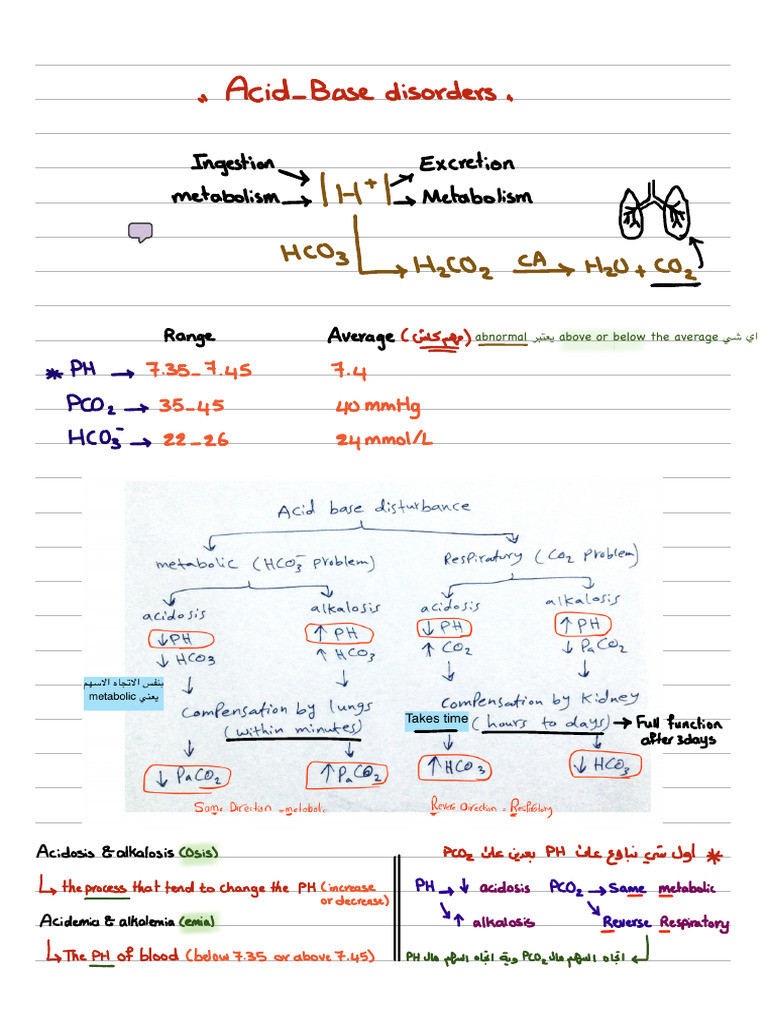 Acid-Base disorders.
Ingestion Excretion
metabolism |H+| Metabolism
HCO3 H2CO2 CA H2O + CO2
Range Average (مهم كلش) اي شي above or below the average يعتبر abnormal
* PH → 7.35-7.45 7.4
PCO2 → 35-45 40 mmHg
HCO3- → 22-26 24 mmol/L
Acid base disturbance
metabolic (HCO3- problem) Respiratury (CO2 problem)
acidosis alkalosis acidosis alkalosis
↓PH ↑PH ↓PH ↑PH
↓HCO3 ↑HCO3 ↑CO2 ↓PaCO2
بنفس الاتجاه الاسهم
يعني metabolic
Compensation by lungs Compensation by kidney
(within minutes) Takes time (hours to days) → Full function
after 3days
↓PaCO2 ↑PaCO2 ↑HCO3 ↓HCO3
Same Direction = metabolic Revers Direction = Respiratory
Acidosis & alkalosis (Osis)
↳ the process that tend to change the PH (increase
or decrease)
Acidemia & alkalemia (emia)
↳ The PH of blood (below 7.35 or above 7.45)
* أول شي نباوع على PH بعدين على PCO2
PH → ↓ acidosis PCO2 → Same metabolic
↑ alkalosis Reverse Respiratory
اتجاه السهم مال PCO2 وية اتجاه السهم مال PH